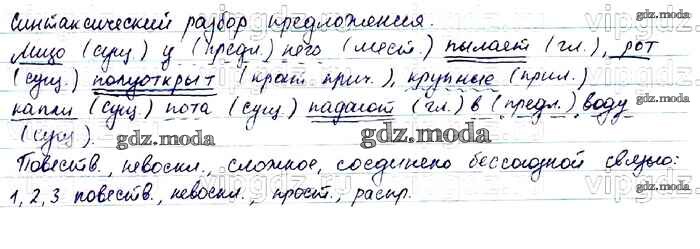 синтаксический разбор предложения.
Лицо (сущ.) у (предл.) него (мест.) пылает (гл.), рот
(сущ.) полуоткрыт (крат. прич.), крупные (прил.)
капли (сущ) пота (сущ) падают (гл.) в (предл.) воду
(сущ).
gdz.moda
gdz.moda
gdz.moda
Повеств., невоскл., сложное, соединено бессоюзной связью:
1, 2, 3 повеств., невоскл., прост., распр.